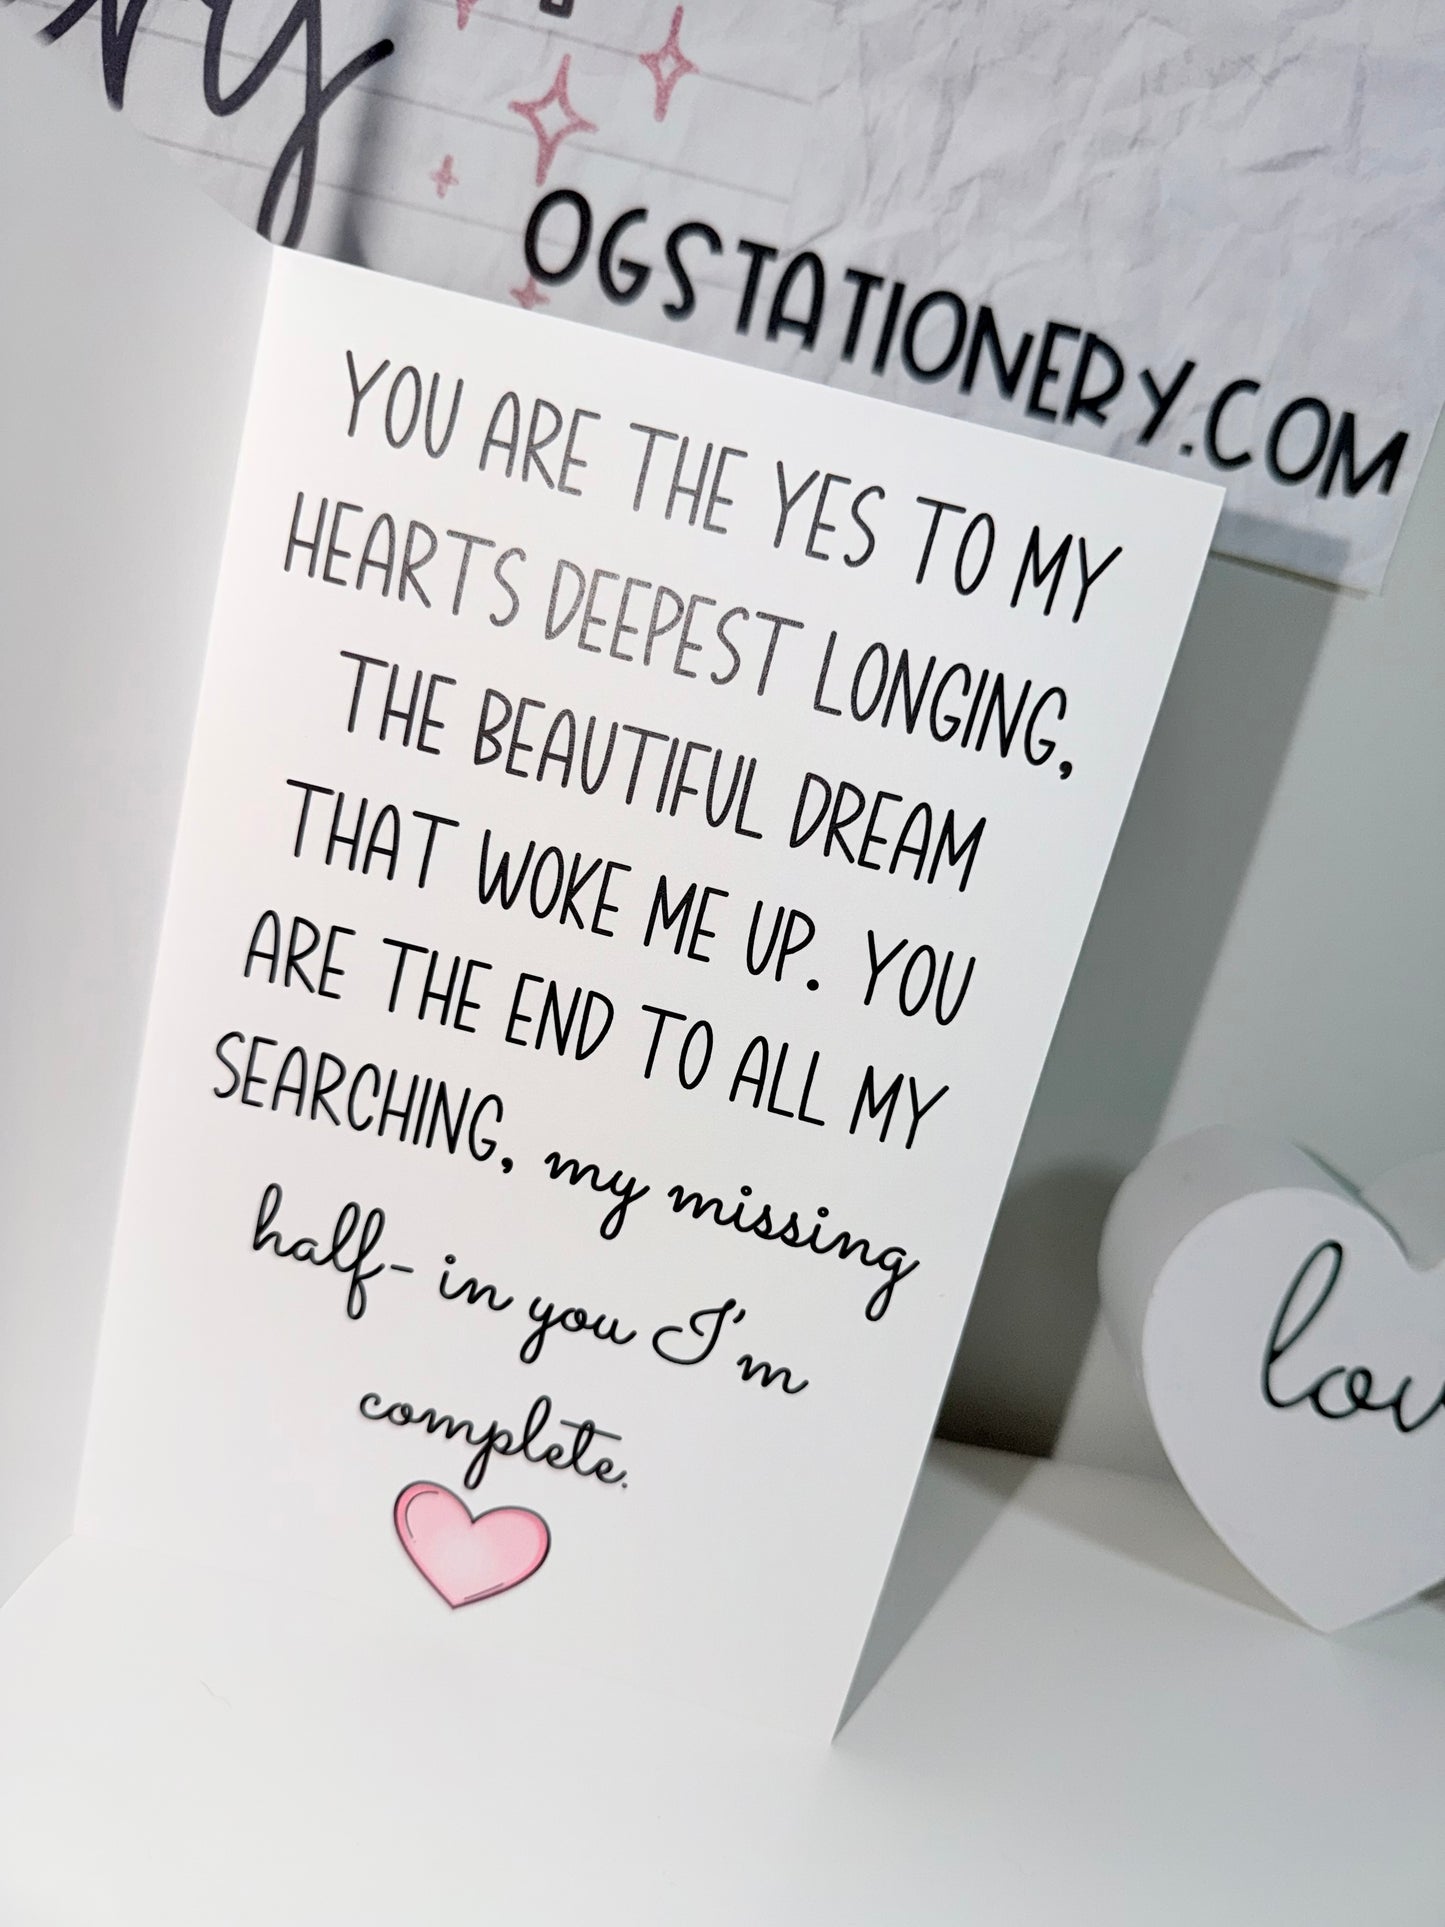 OGSTATIONERY.COM
YOU ARE THE YES TO MY
HEARTS DEEPEST LONGING,
THE BEAUTIFUL DREAM
THAT WOKE ME UP. YOU
ARE THE END TO ALL MY
SEARCHING, my missing
half- in you I'm
complete.